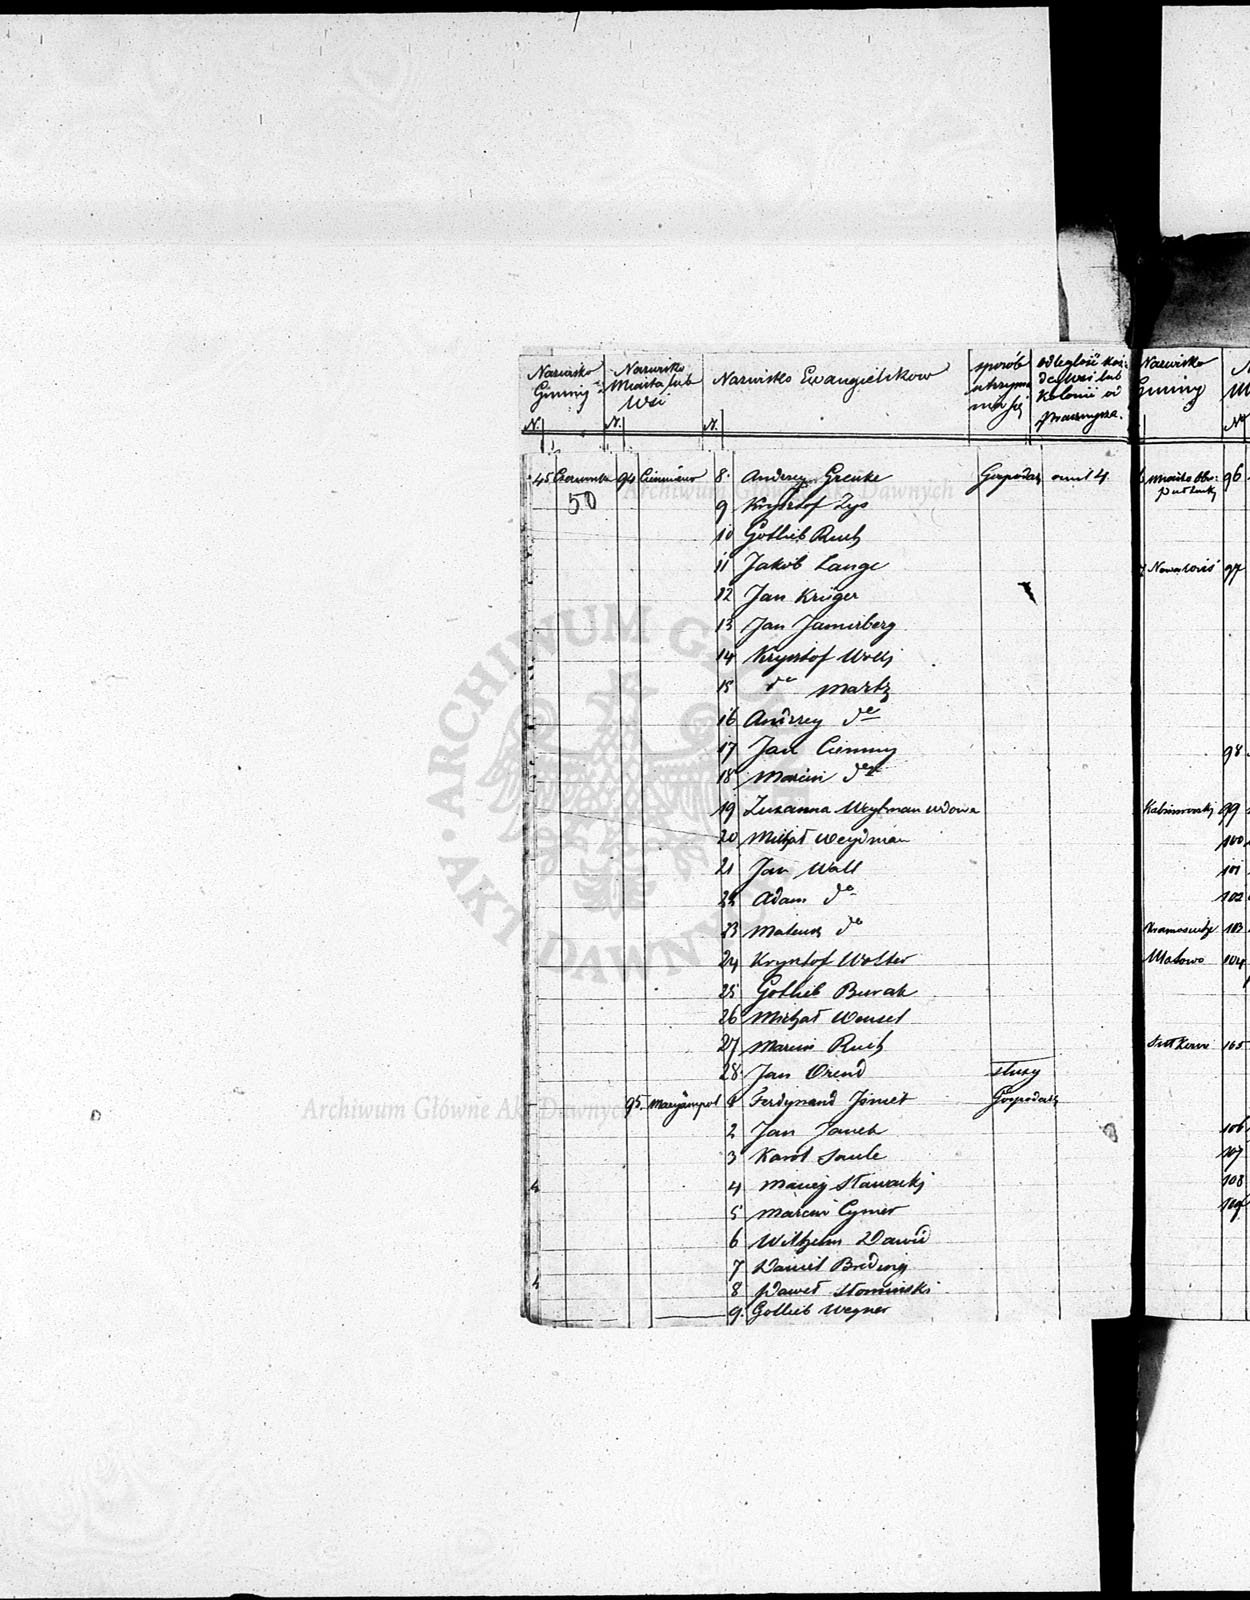 Nazwisko Gminy N.
Nazwisko Miasta lub Wsi N.
Nazwisko Ewangielikow N.
sposób utrzyma nia się
odległość każ- dej wsi lub Kolonii od Przasnysza.
45 Czerwonka 94 Cieminiewo 8. Andrzey Grenke Gospodarz mil 4.
50
9 Krysztof Zys
10 Gotlieb Ruch
11 Jakób Lange
12 Jan Krüger
13 Jan
14 Krysztof
15 do Martz
16 Andrzey do
17 Jan Ciemny
18 Marcin do
19 Zuzanna Weydman wdowa
20 Michał Weydman
21 Jan Wall
22 Adam do
23 Mateusz do
24 Krysztof Wolter
25 Gotlieb Burak
26 Michał Wensel
27 Marcin Ruch
28. Jan Orend służy
95. Maryampol 1 Ferdynand Gospodarz
2 Jan Janek
3 Karol Saule
4 Maciey Sławacki
5 Marcin Cymer
6 Wilhelm Dawid
7 Daniel Breding
8 Paweł Słominski
9. Gotlieb Wegner
Nazwisko Gminy
No
96
97
98
99
100
101
102
103
104
105
106
107
108
109
ARCHIWUM GŁÓWNE AKT DAWNYCH
Archiwum Główne Akt Dawnych
Archiwum Główne Akt Dawnych